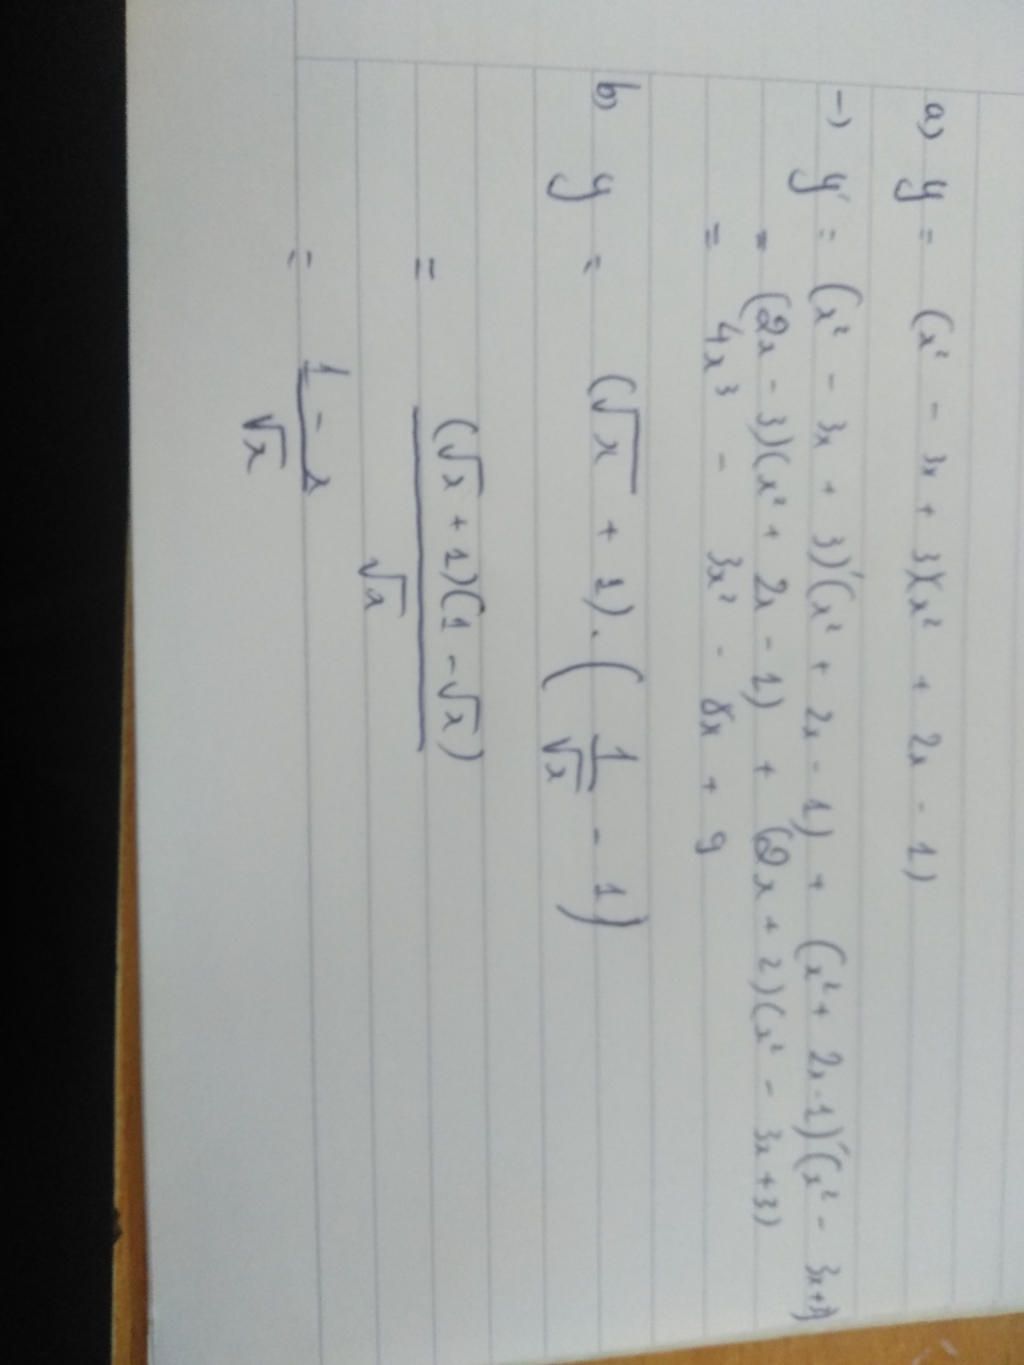 a) y = (x² - 3x + 3)(x² + 2x - 1)
→) y' = (x² - 3x + 3)'(x² + 2x - 1) + (x² + 2x - 1)'(x² - 3x + 3)
= (2x - 3)(x² + 2x - 1) + (2x + 2)(x² - 3x + 3)
= 4x³ - 3x² - 8x + 9
b) y = (√x + 1).(1/√x - 1)
= (√x + 1)(1 - √x)/√x
= 1 - x/√x